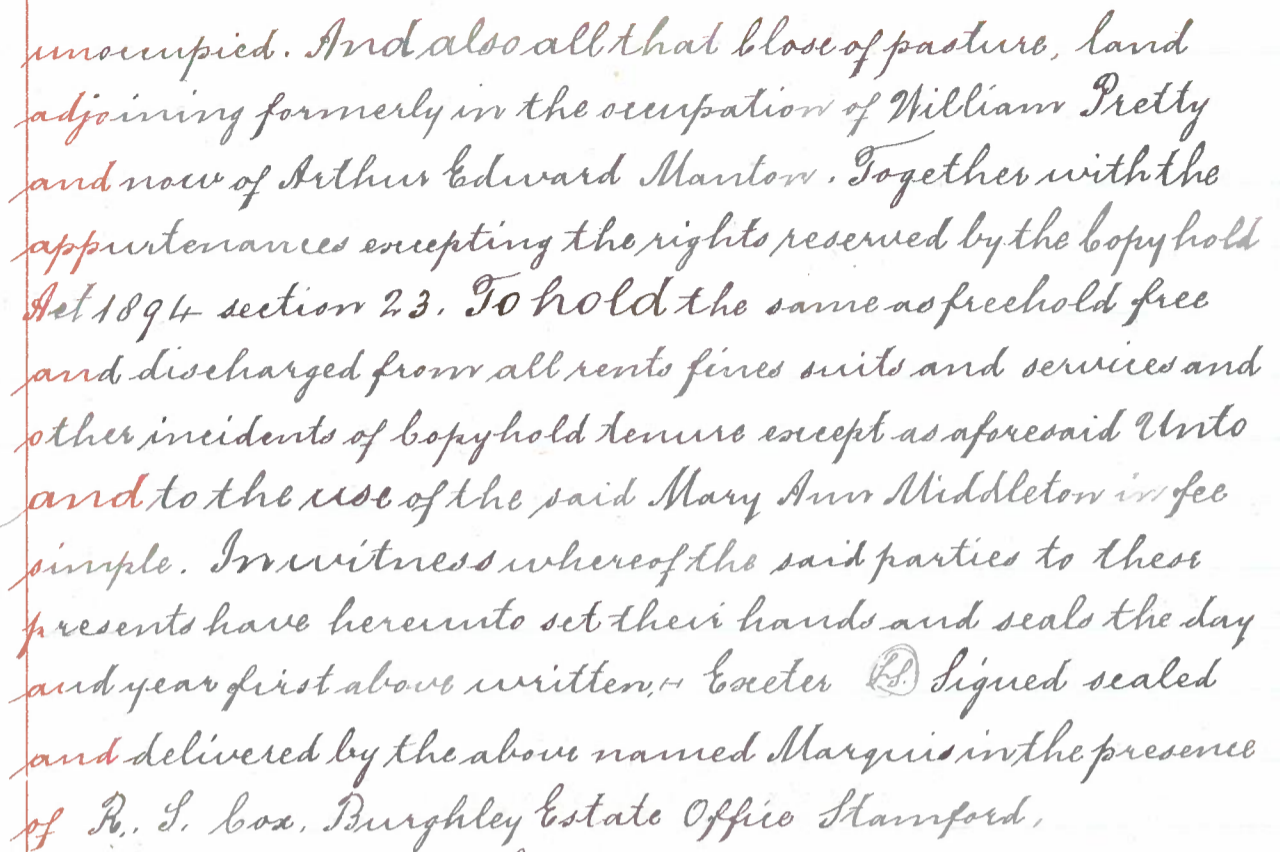 unoccupied. And also all that Close of pasture, land
adjoining formerly in the occupation of William Pretty
and now of Arthur Edward Manton. Together with the
appurtenances excepting the rights reserved by the Copyhold
Act 1894 section 23. To hold the same as freehold free
and discharged from all rents fines suits and services and
other incidents of Copyhold tenure except as aforesaid Unto
and to the use of the said Mary Ann Middleton in fee
simple. In witness whereof the said parties to these
presents have hereunto set their hands and seals the day
and year first above written, Exeter L.S. Signed sealed
and delivered by the above named Marquis in the presence
of R. S. Cox, Burghley Estate Office Stamford,